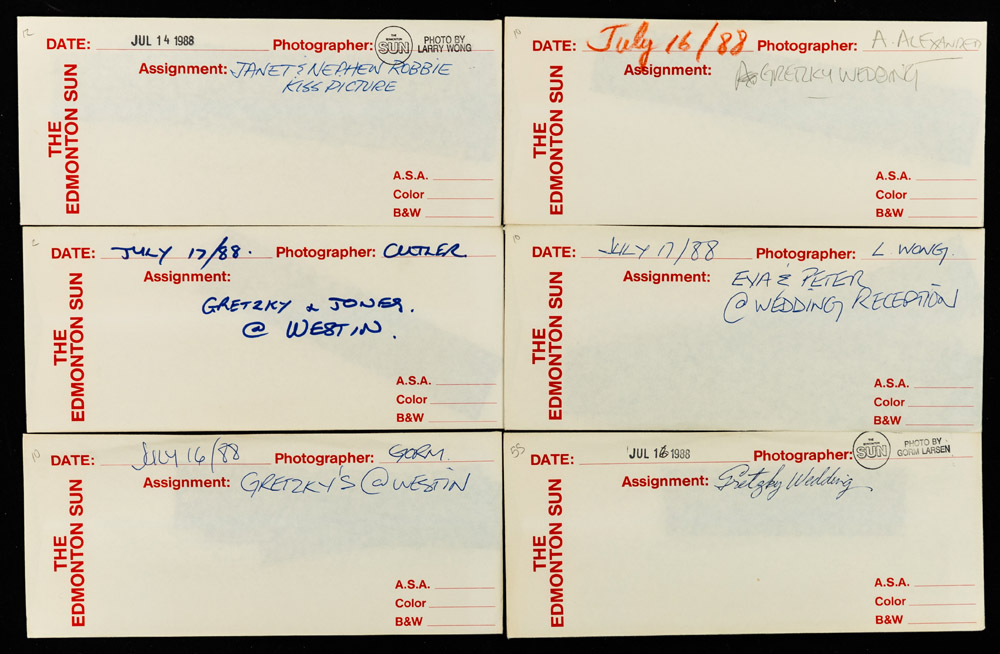 12
DATE: JUL 14 1988 Photographer: THE EDMONTON SUN PHOTO BY LARRY WONG
Assignment: JANET & NEPHEW ROBBIE
KISS PICTURE
THE
EDMONTON SUN
A.S.A.
Color
B&W
10
DATE: July 16/88 Photographer: A. ALEXANDER
Assignment: GRETZKY WEDDING
THE
EDMONTON SUN
A.S.A.
Color
B&W
DATE: JULY 17/88. Photographer: CUTLER
Assignment:
GRETZKY & JONES.
@ WESTIN.
THE
EDMONTON SUN
A.S.A.
Color
B&W
10
DATE: JULY 17/88 Photographer: L. WONG.
Assignment: EVA & PETER
@ WEDDING RECEPTION
THE
EDMONTON SUN
A.S.A.
Color
B&W
10
DATE: JULY 16/88 Photographer: GORM.
Assignment: GRETZKY'S @ WESTIN
THE
EDMONTON SUN
A.S.A.
Color
B&W
55
DATE: JUL 16 1988 Photographer: THE EDMONTON SUN PHOTO BY GORM LARSEN
Assignment: Gretzky Wedding
THE
EDMONTON SUN
A.S.A.
Color
B&W